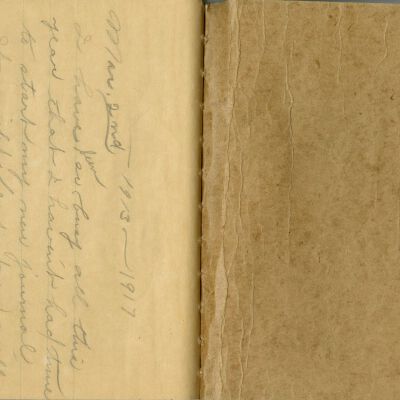 Mar. 2nd 1913 – 1917
I have been so busy all this
year that I haven't had time
to start my new journal